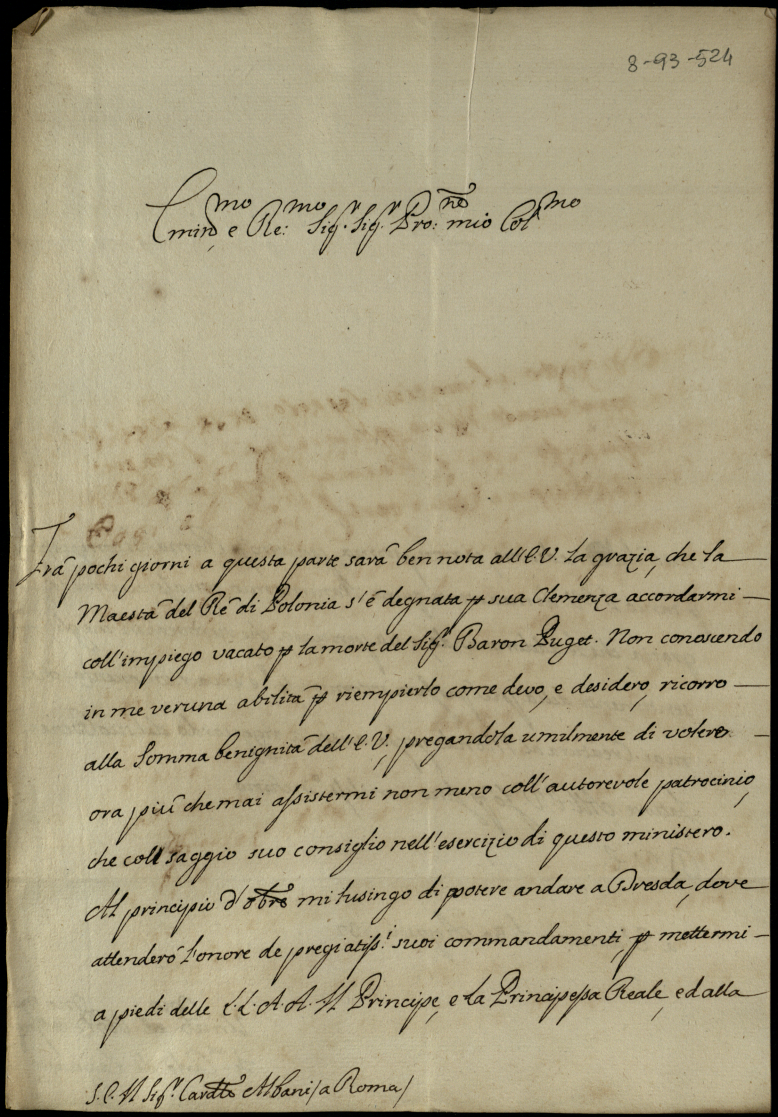 8-93-524
Emin.mo e Re:mo Sig.r Sig.r Pro:ne mio Col.mo
Frà pochi giorni a questa parte sarà ben nota all'E.V. la grazia, che la
Maestà del Rè di Polonia s'è degnata p sua Clemenza accordarmi
coll'impiego vacato p la morte del Sig.r Baron Puget. Non conoscendo
in me veruna abilità p riempierlo come devo, e desidero, ricorro
alla Somma benignità dell'E.V., pregandola umilmente di volere
ora più che mai assistermi non meno coll'autorevole patrocinio,
che coll saggio suo consiglio nell'esercizio di questo ministero.
Al principio d'obre mi lusingo di potere andare a Dresda, dove
attenderò l'onore de pregiatiss.i suoi commandamenti, p mettermi
a piedi delle L.L.A.A. Il Principe, e la Principessa Reale, ed alla
S.E. Il Sig.r Cardle Albani /a Roma/